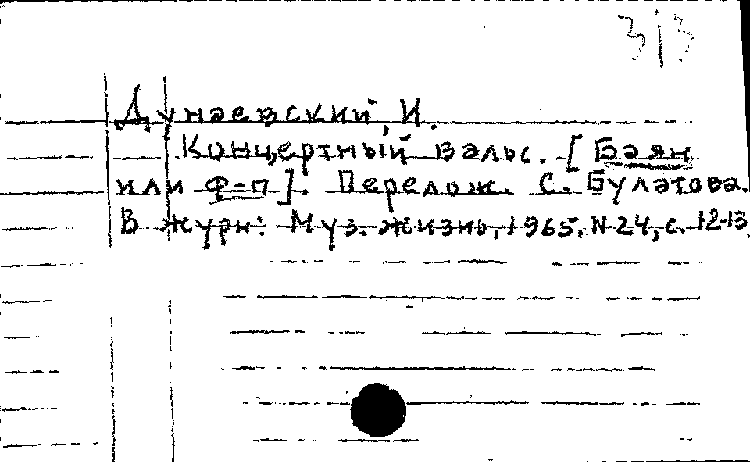 313
Дунаевский, И.
Концертный вальс. [Баян
или ф-п]. Перелож. С. Булатова.
В журн: Муз. жизнь, 1965. N 24, с. 12-13